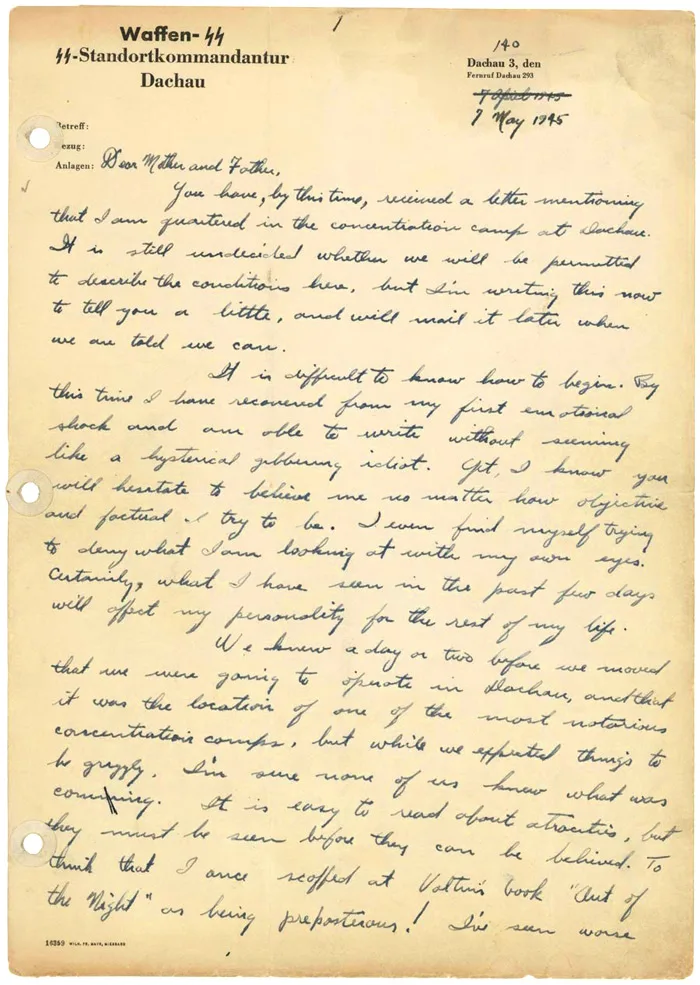 1
Waffen-SS
SS-Standortkommandantur
Dachau
140
Dachau 3, den
Fernruf Dachau 293
7 April 1945
7 May 1945
Betreff:
Bezug:
Anlagen: Dear Mother and Father,
You have, by this time, received a letter mentioning
that I am quartered in the concentration camp at Dachau.
It is still undecided whether we will be permitted
to describe the conditions here, but I'm writing this now
to tell you a little, and will mail it later when
we are told we can.
It is difficult to know how to begin. By
this time I have recovered from my first emotional
shock and am able to write without seeming
like a hysterical gibbering idiot. Yet, I know you
will hesitate to believe me no matter how objective
and factual I try to be. I even find myself trying
to deny what I am looking at with my own eyes.
Certainly, what I have seen in the past few days
will affect my personality for the rest of my life.
We knew a day or two before we moved
that we were going to operate in Dachau, and that
it was the location of one of the most notorious
concentration camps, but while we expected things to
be grizzly, I'm sure none of us knew what was
coming. It is easy to read about atrocities, but
they must be seen before they can be believed. To
think that I once scoffed at Valtin's book "Out of
the Night" as being preposterous! I've seen worse
16359 WILH. FR. MAYR, MIESBACH